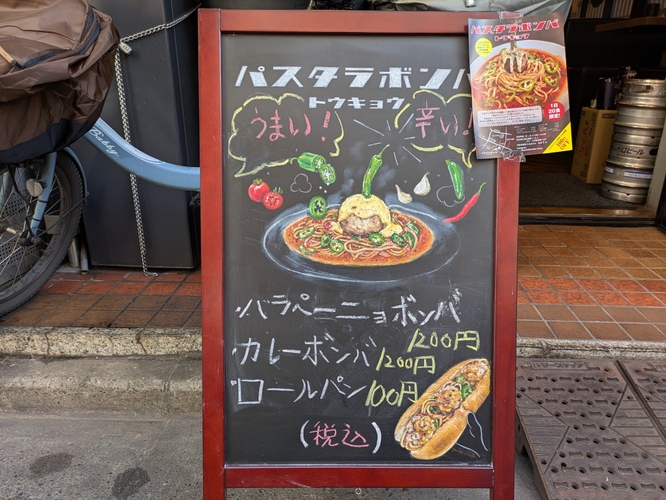 パスタラボンバ
トウキョウ
うまい!
辛い!
ハラペーニョボンバ
1200円
カレーボンバ 1200円
ロールパン 100円
(税込)
パスタラボンバ
トウキョウ
1日
20食
限定!
Bobby